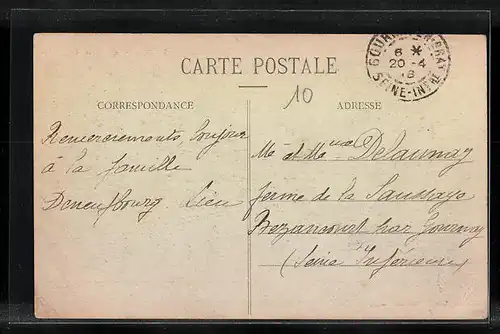 GOURNAY-EN-BRAY
6 *
20-4
16
SEINE-INFRE
CARTE POSTALE
10
CORRESPONDANCE
ADRESSE
Remerciements, bonjour
à la famille
Mr et Mme Delaunay
ferme de la Saussaye
Bezancourt par Gournay
(Seine Inférieure)